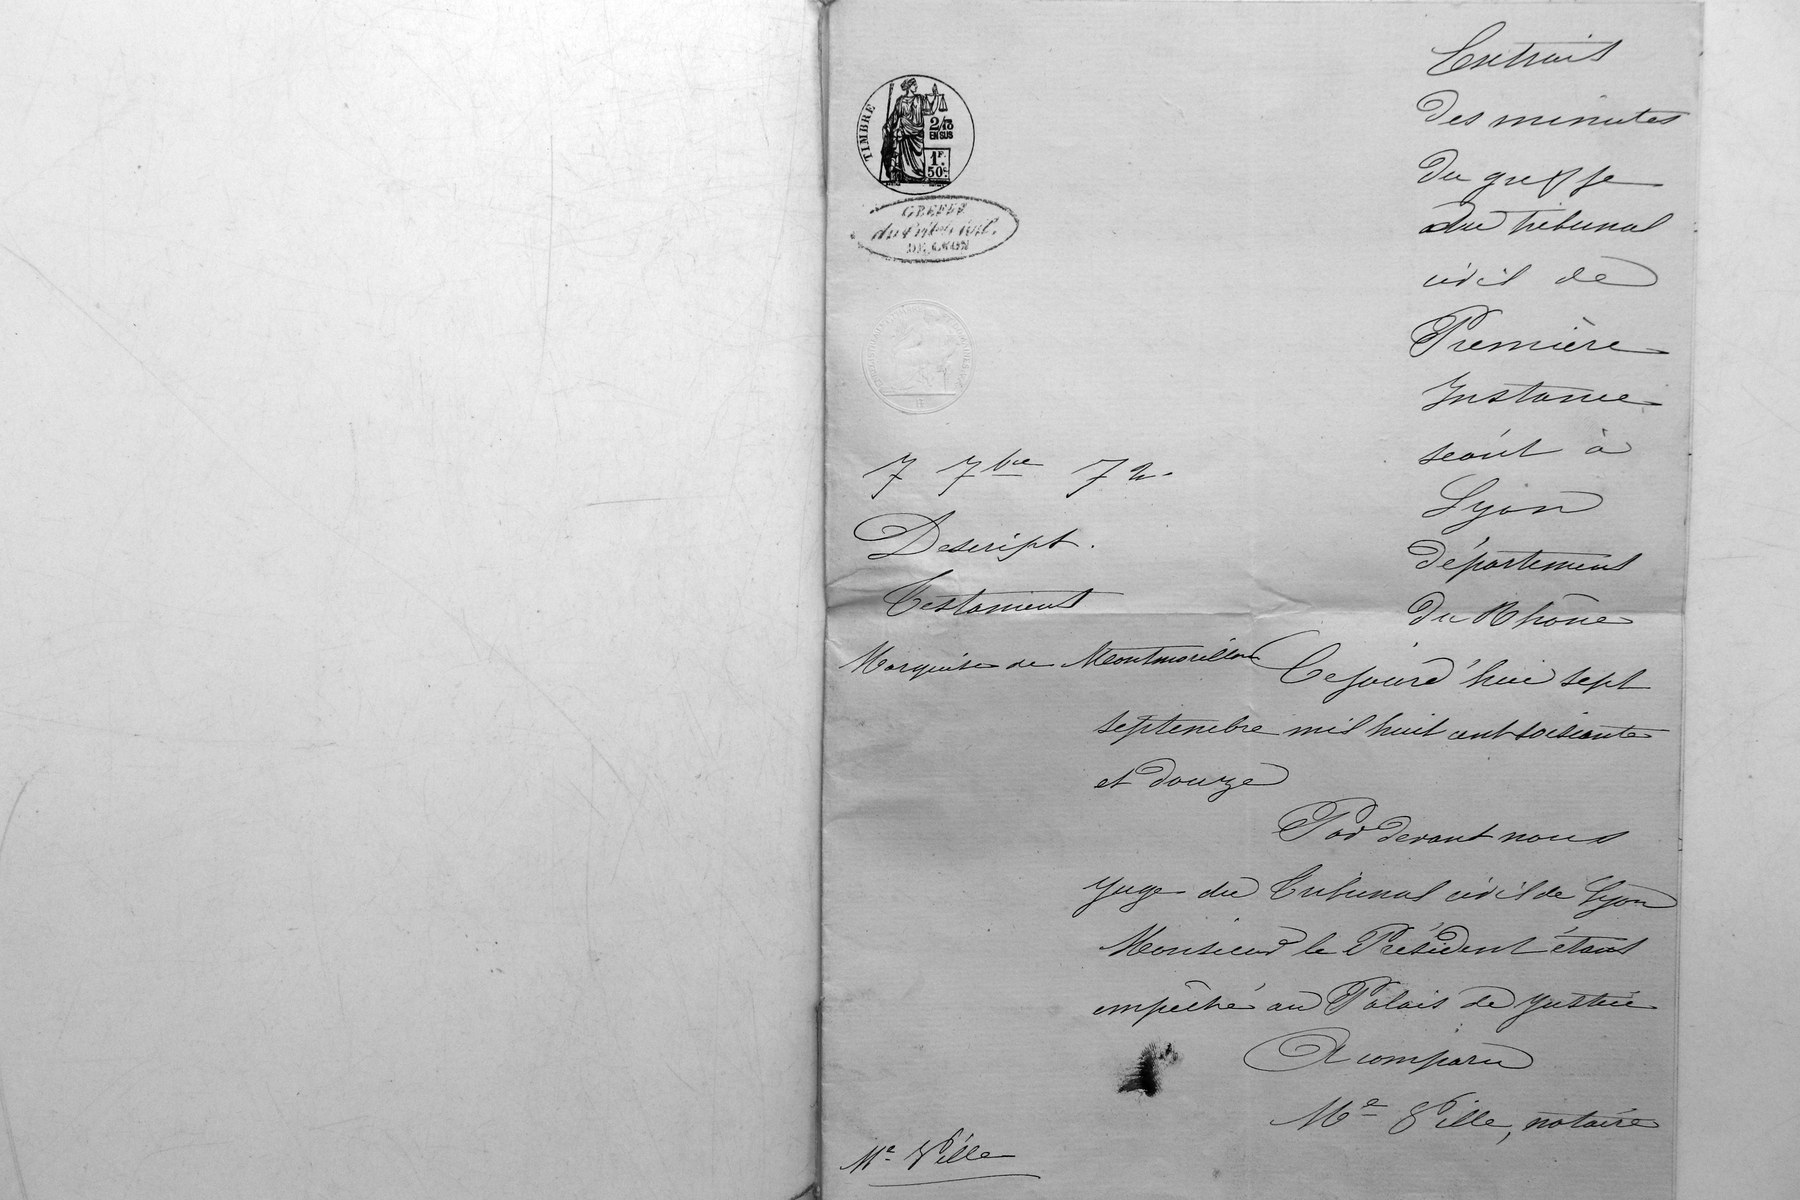 Extrait
des minutes
du greffe
du tribunal
civil de
Première
Instance
séant à
Lyon
département
du Rhône
TIMBRE
2/10
EN SUS
1F.
50c.
GREFFE
du Tribal civil.
DE LYON
7 7bre 72.
Descript.
Testament
Marquise de Montmorillon
Cejourd'hui sept
septembre mil huit cent soixante
et douze
Par devant nous
Juge du Tribunal civil de Lyon
Monsieur le Président étant
empêché au Palais de Justice
A comparu
Me Ville, notaire
Me Ville